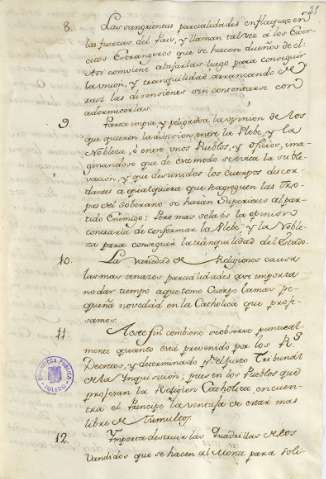 8. Las sangrientas parcialidades enflaquecen
las fuerzas del Pais, y llaman tal vez a los Exer-
citos Extrangeros que se hacen dueños de el
Assi conviene atajarlas luego para conseguir
la union, y tranquilidad arrancando de
raiz las disensiones sin contentarse con
adormecerlas.
9. Parece impia, y peligrosa la opinion de los
que quieren la division entre la Plebe, y la
Nobleza, ó entre unos Pueblos, y otros, ima-
ginandose que de ese modo se evita la suble-
vacion, y que desunidos los cuerpos discor-
dantes a qualquiera que se agreguen las Tro-
pas del Soberano se harán Superiores al par-
tido Enemigo: Pero mas sola es la opinion
contraria de conformar la Plebe, y la Noble-
za para conseguir la tranquilidad del Estado.
10. La variedad de Religiones causa
las mas tenaces parcialidades que importa
no dar tiempo a que tome Cuerpo la mas pe-
queña novedad en la Catholica que profe-
samos.
11. A este fin combiene se observe puntual-
mente quanto está prevenido por los Rs
Decretos, y determinado pr el Justo Tribunal
de la Ynquisicion; pues en los Pueblos que
profesan la Religion Catholica encuen-
tra el Principe la ventaja de estar mas
libre de Tumultos.
12. Importa destruir las Quadrillas de los
Vandidos que se hacen al Monte para sole-
BIBLIOTECA PUBLICA
TOLEDO